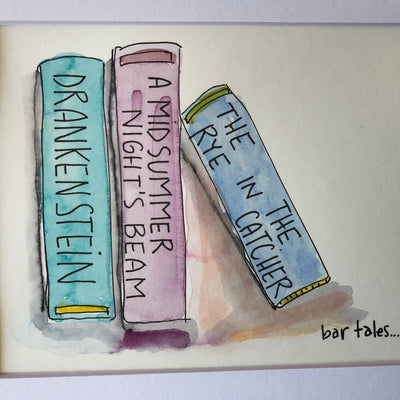 DRANKENSTEIN
A MIDSUMMER
NIGHT'S BEAM
THE IN THE
RYE CATCHER
bar tales...